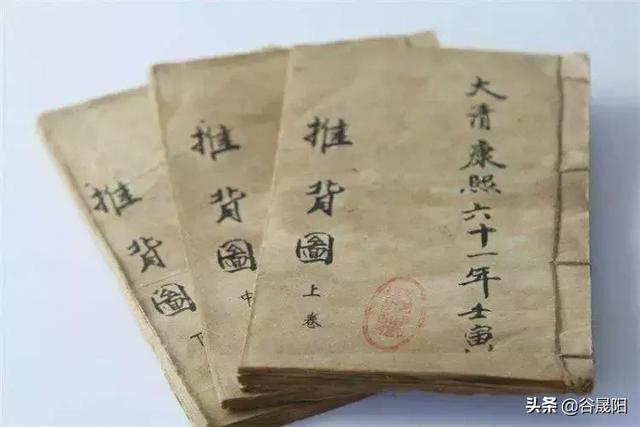 大清康熙六十一年壬寅
推背圖
上卷
推背圖
中
推背圖
下
头条 @谷晟阳